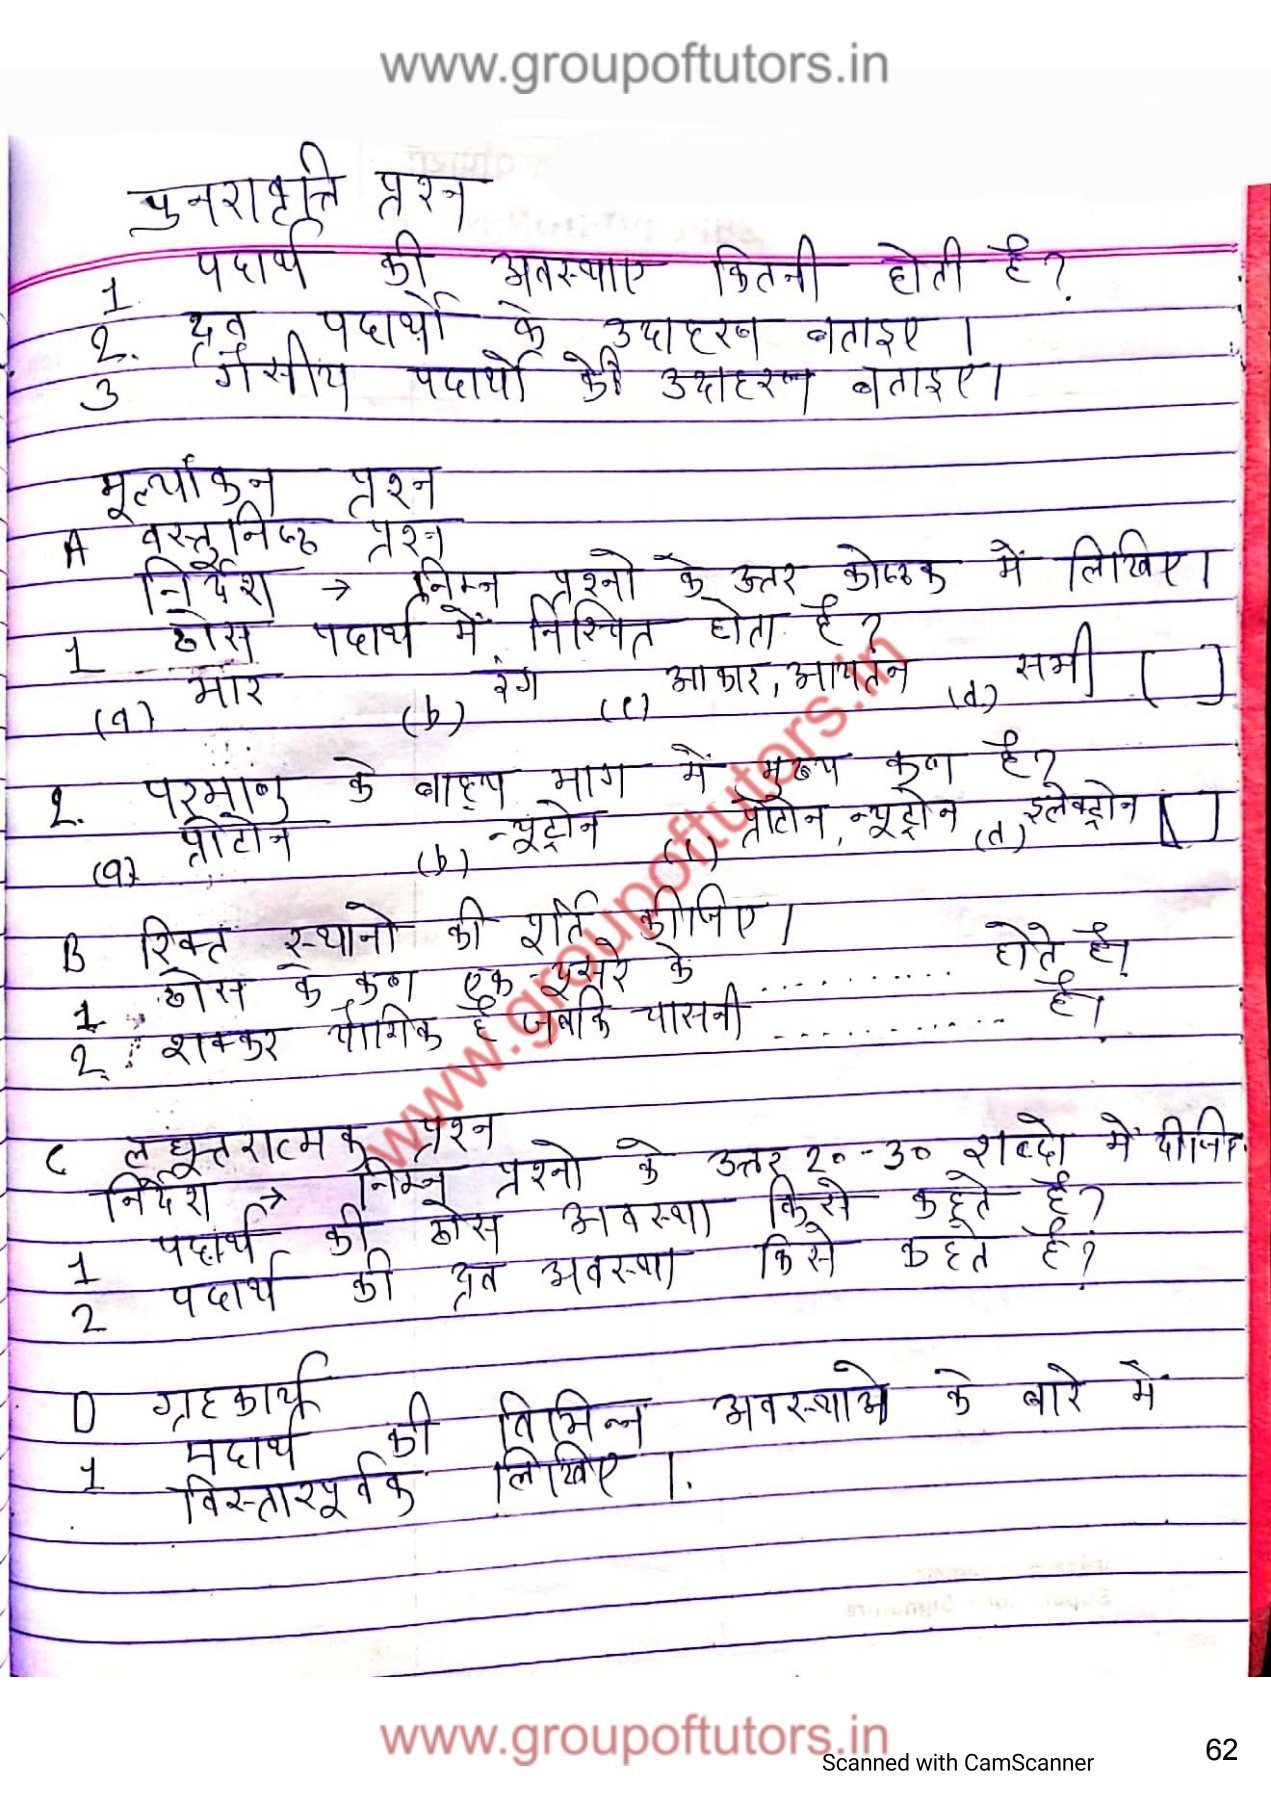 www.groupoftutors.in
पुनरावृत्ति प्रश्न
1 पदार्थ की अवस्थाए कितनी होती है?
2. द्रव पदार्थो के उदाहरण बताइए ।
3 गैसीय पदार्थो की उदाहरण बताइए।
मूल्यांकन प्रश्न
A वस्तुनिष्ठ प्रश्न
निर्देश → निम्न प्रश्नो के उत्तर कोष्ठक में लिखिए।
1 ठोस पदार्थ में निश्चित होता है?
(a) भार (b) रंग (c) आकार, आयतन (d) सभी
2. परमाणु के बाह्य भाग में मुख्य कण है?
(a) प्रोटोन (b) न्यूट्रोन (c) प्रोटोन, न्यूट्रोन (d) इलेक्ट्रोन
B रिक्त स्थानो की कीजिए।
1 ठोस के कण एक दूसरे के .......... होते है।
2. शक्कर यौगिक है जबकि चासनी ............ है।
C लघूत्तरात्मक प्रश्न
निर्देश → निम्न प्रश्नो के उत्तर २०-३० शब्दो में दीजिए
1 पदार्थ की ठोस अवस्था किसे कहते है?
2 पदार्थ की द्रव अवस्था किसे कहते है?
D ग्रहकार्य
1 पदार्थ की विभिन्न अवस्थाओ के बारे में
विस्तारपूर्वक लिखिए ।
www.groupoftutors.in
www.groupoftutors.in
Scanned with CamScanner
62